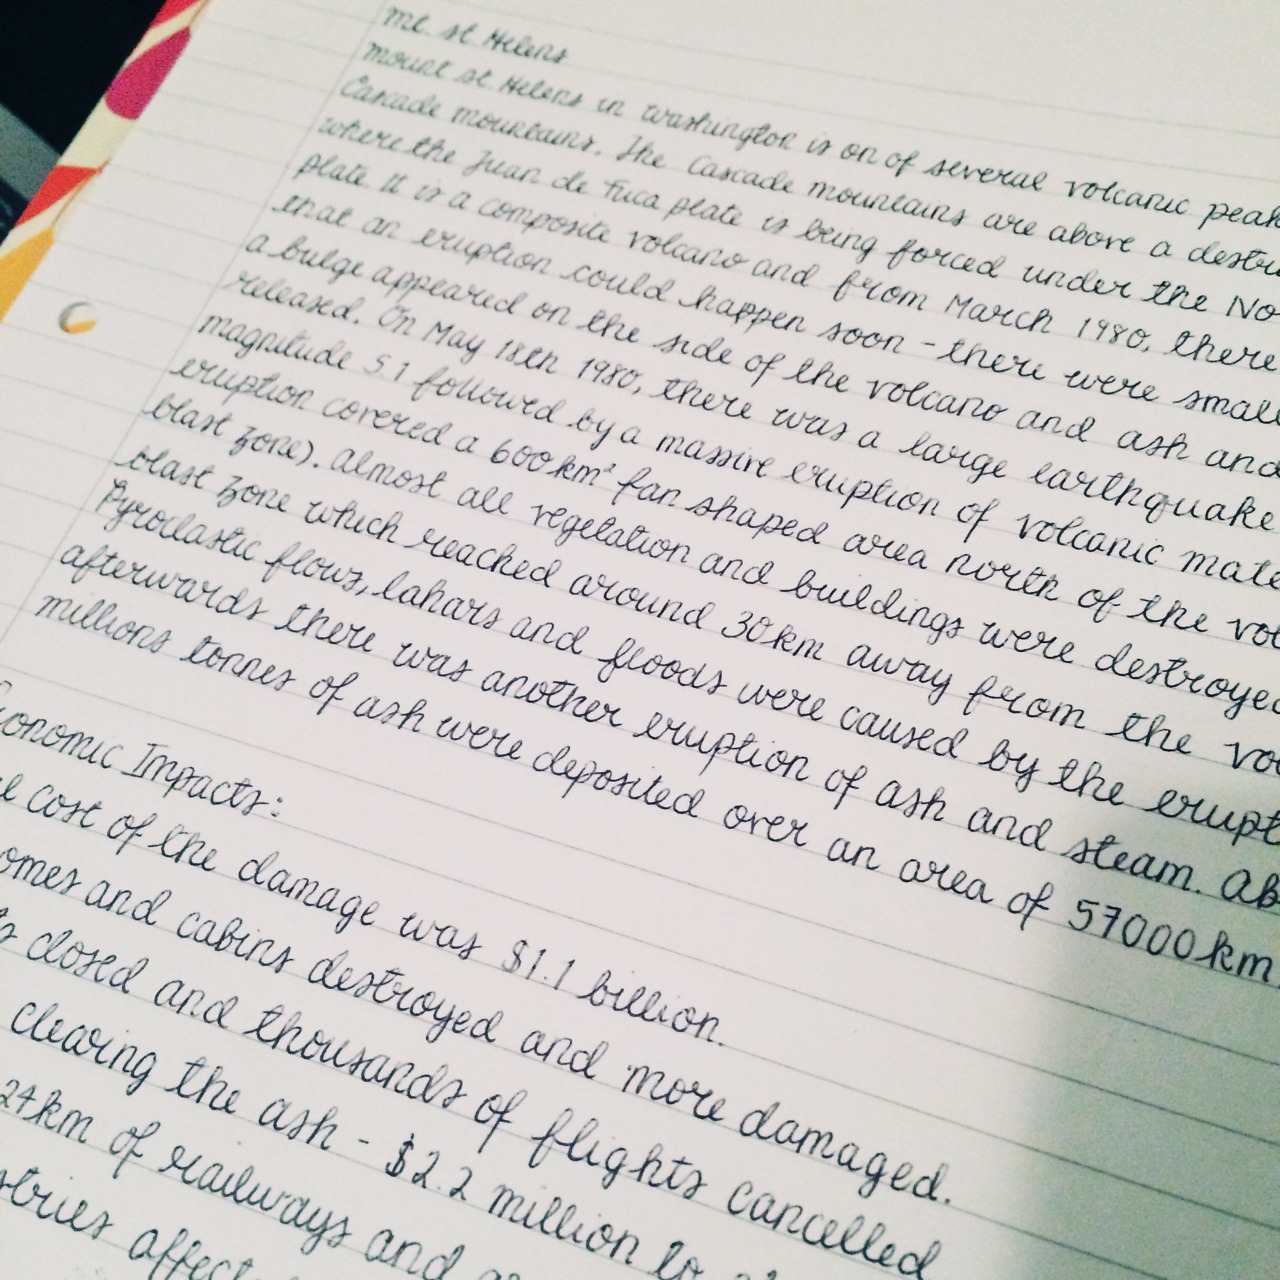 Mt. St. Helens
Mount St. Helens in Washington is on of several volcanic peak
Cascade mountains. The Cascade mountains are above a destru
where the Juan de Fuca plate is being forced under the No
plate. It is a composite volcano and from March 1980, there
that an eruption could happen soon - there were small
a bulge appeared on the side of the volcano and ash and
released. On May 18th 1980, there was a large earthquake
magnitude 5.1 followed by a massive eruption of volcanic mate
eruption covered a 600km² fan shaped area north of the vol
blast zone). Almost all vegetation and buildings were destroyed
blast zone which reached around 30km away from the vo
Pyroclastic flows, lahars and floods were caused by the erupt
afterwards there was another eruption of ash and steam. Ab
millions tonnes of ash were deposited over an area of 57000km
conomic Impacts:
cost of the damage was $1.1 billion.
omes and cabins destroyed and more damaged.
closed and thousands of flights cancelled
clearing the ash - $2.2 million to
24km of railways and
stries affect